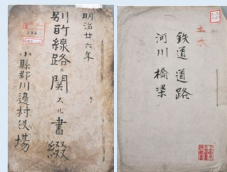 明治廿六年
別所線路ニ関スル書綴
小縣郡川邊村役場
鉄道道路
河川橋梁